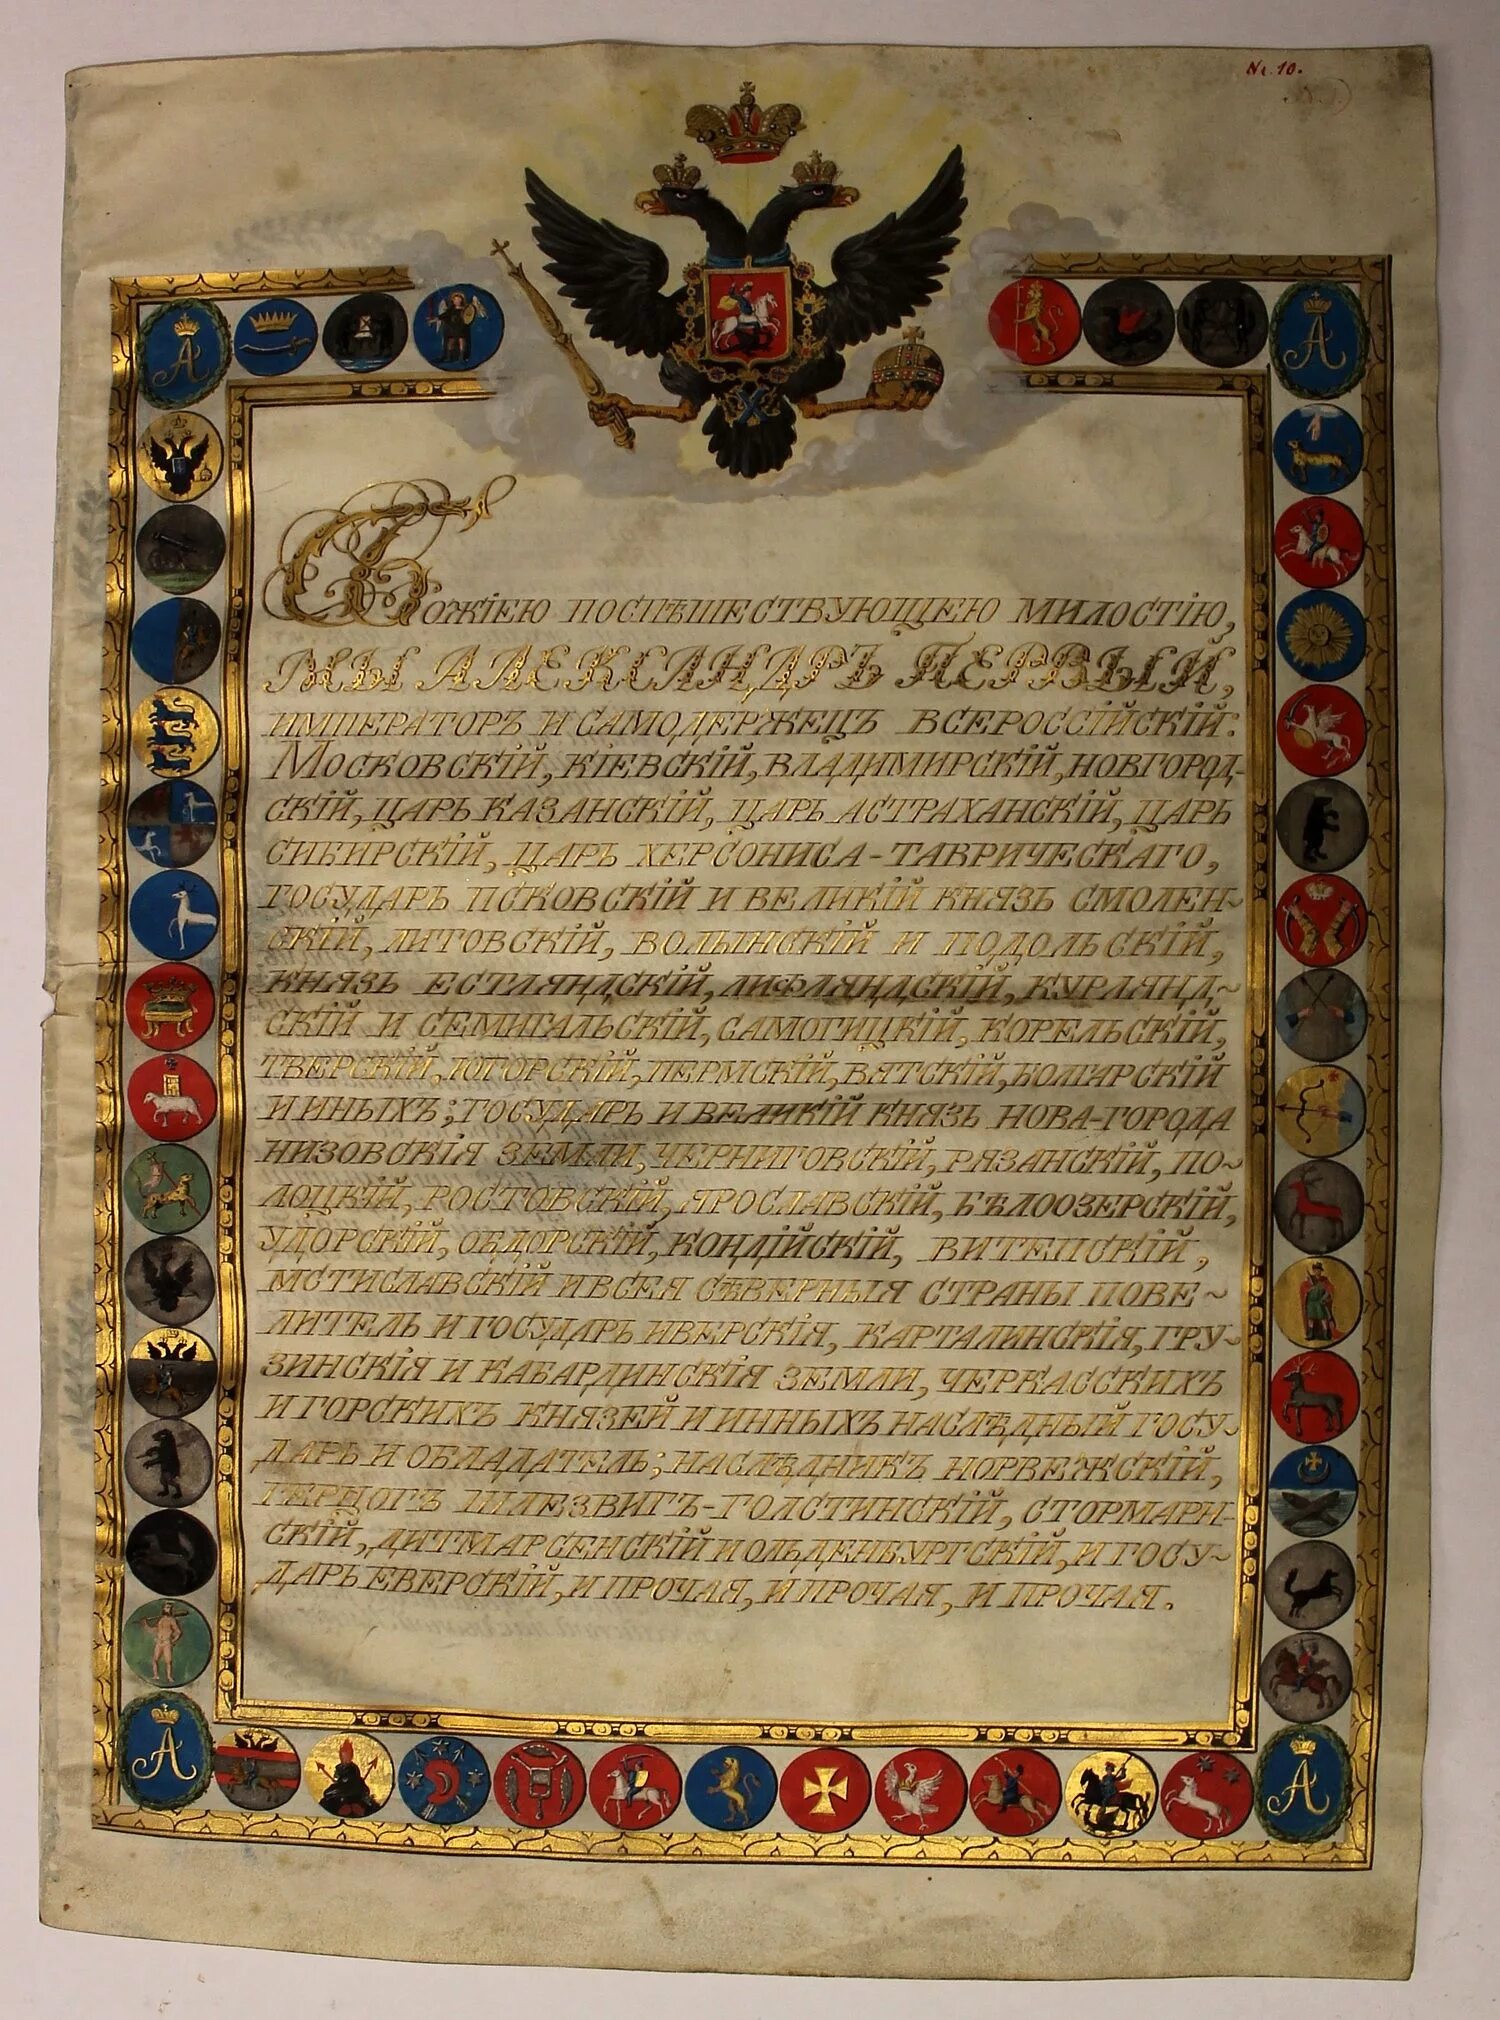 № 10.
Божіею поспѣшествующею милостію,
Мы Александръ Первый,
императоръ и самодержецъ всероссійскій:
Московскій, кіевскій, владимирскій, новгород-
скій, царь казанскій, царь астраханскій, царь
сибирскій, царь херсониса-таврическаго,
государь псковскій и великій князь смолен-
скій, литовскій, волынскій и подольскій,
князь естляндскій, лифляндскій, курлянд-
скій и семигальскій, самогицкій, корельскій,
тверскій, югорскій, пермскій, вятскій, болгарскій
и иныхъ; государь и великій князь нова-города
низовскія земли, черниговскій, рязанскій, по-
лоцкій, ростовскій, ярославскій, бѣлоозерскій,
удорскій, обдорскій, кондійскій, витепскій,
мстиславскій и всея сѣверныя страны пове-
литель и государь иверскія, карталинскія, гру-
зинскія и кабардинскія земли, черкасскихъ
и горскихъ князей и инныхъ наслѣдный госу-
дарь и обладатель; наслѣдникъ норвежскій,
герцогъ шлезвигъ-голстинскій, стормарн-
скій, дитмарсенскій и ольденбургскій, и госу-
дарь еверскій, и прочая, и прочая, и прочая.
А
А
А
А